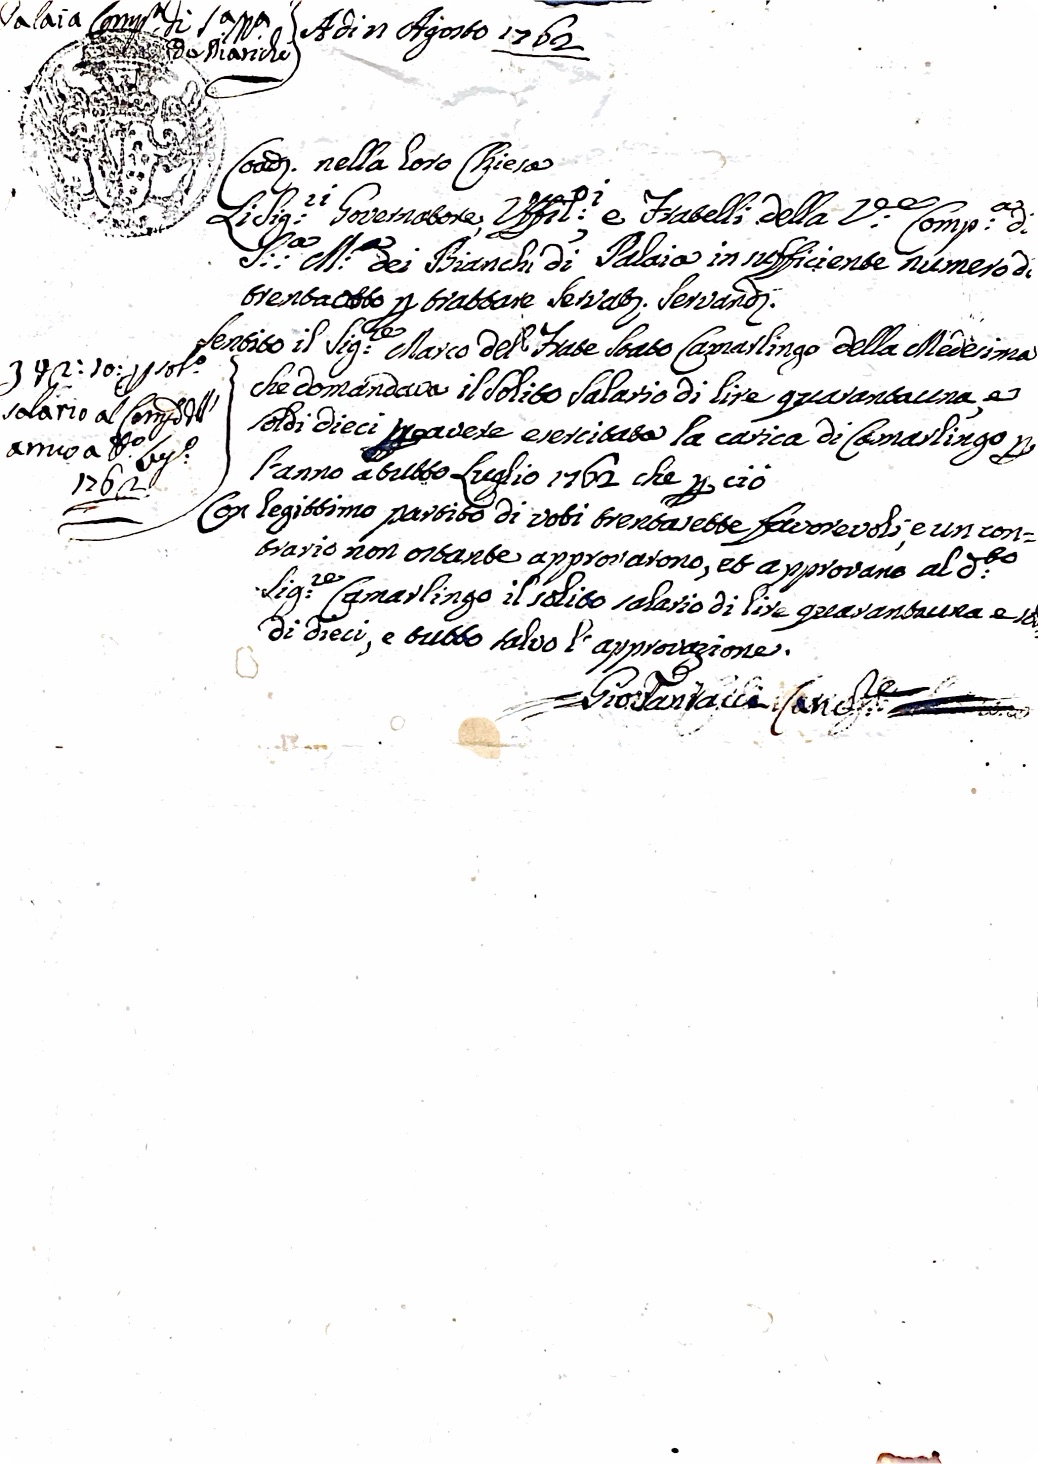 Palaia Comp.ª di S.ª M.ª
de Bianchi
Adi 11 Agosto 1762
Coad. nella loro Chiesa
Li Sig.ri Governatore, Uffil.i e Fratelli della V.e Comp.a di
S.:a M.a dei Bianchi di Palaia in sufficiente numero di
trentaotto p trattare Servat. Servand.
Sentito il Sig.re Marco del Frate Stato Camarlingo della Medesima
che domandava il solito salario di lire quarantauna, e
soldi dieci p avere esercitata la carica di Camarlingo p
l'anno a tutto Luglio 1762 che p ciò
Con legittimo partito di voti trentasette favorevoli, e un con=
trario non ostante approvarono, et approvano al d.to
Sig.re Camarlingo il solito salario di lire quarantauna e sol
di dieci, e tutto salvo l'approvazione.
salario al
anno a tt.o Lug.o
1762
Gio: Canc.re